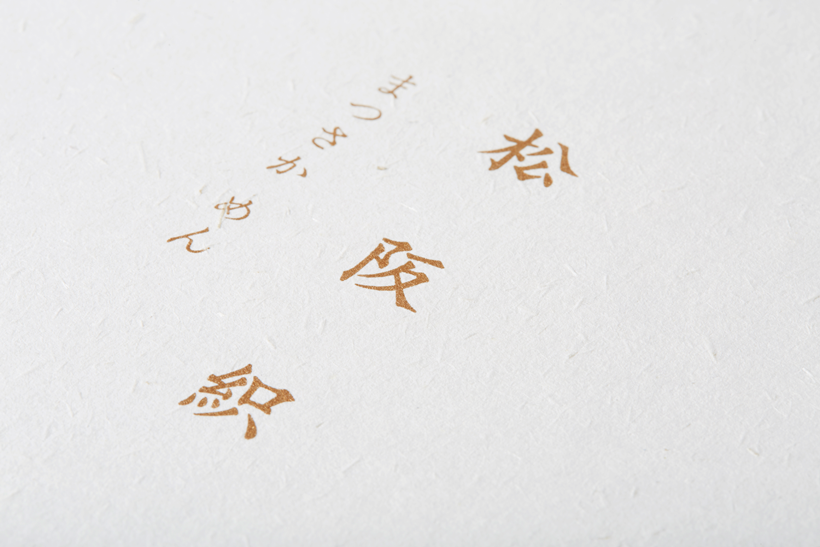 松阪织
まつさか めん